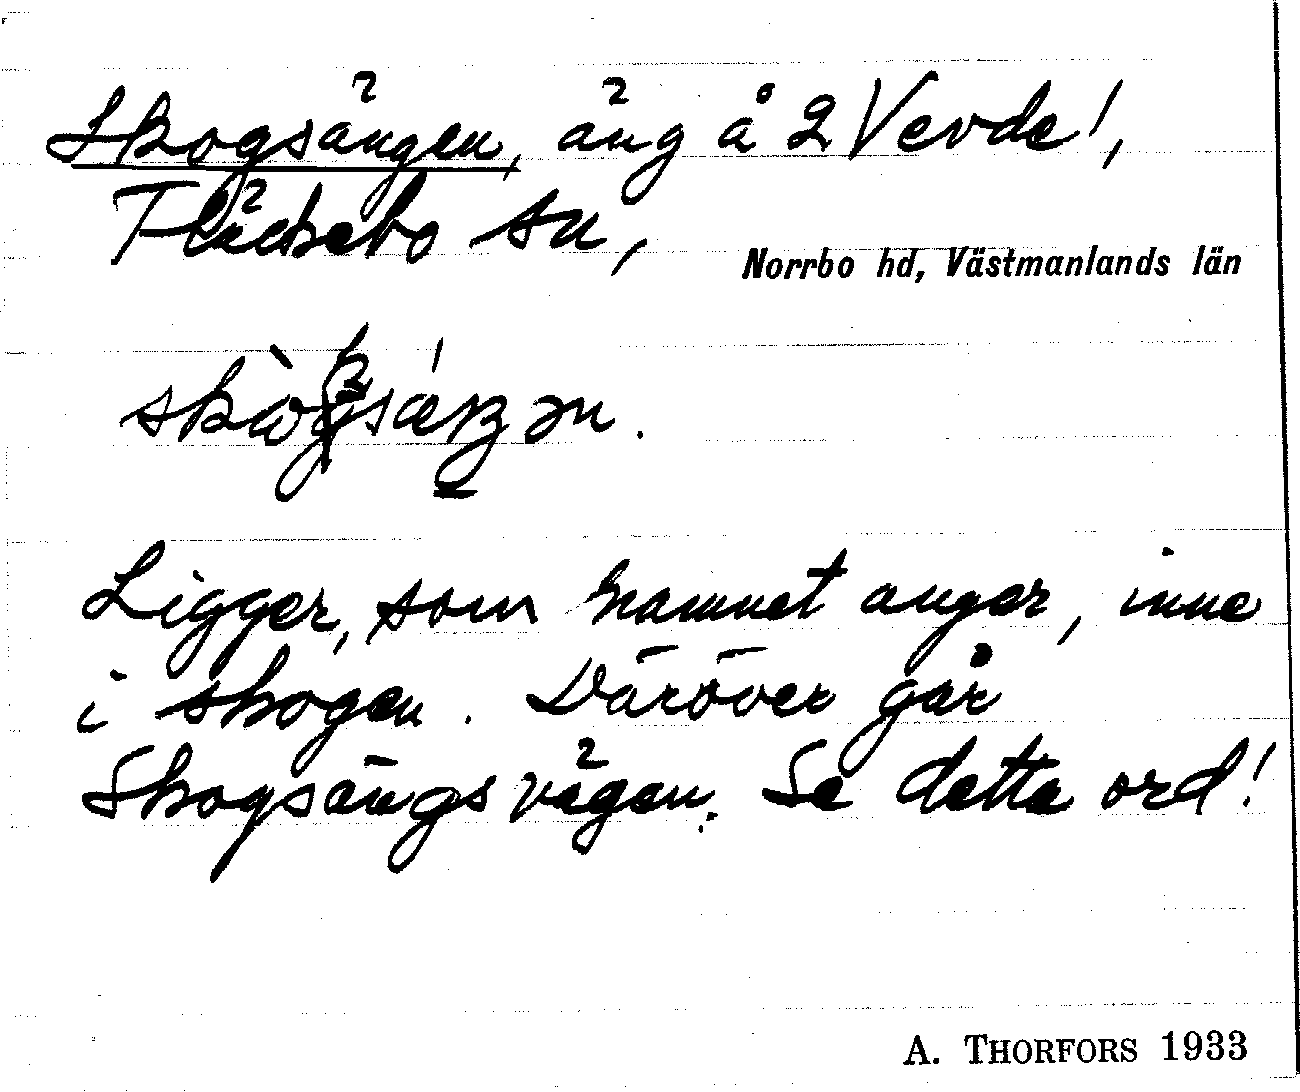 Skogsängen, äng å 2 Verde!,
Fläckebo sn,
Norrbo hd, Västmanlands län
Ligger, som namnet anger, inne
i skogen. Däröver går
Skogsängsvägen. Se detta ord!
A. THORFORS 1933